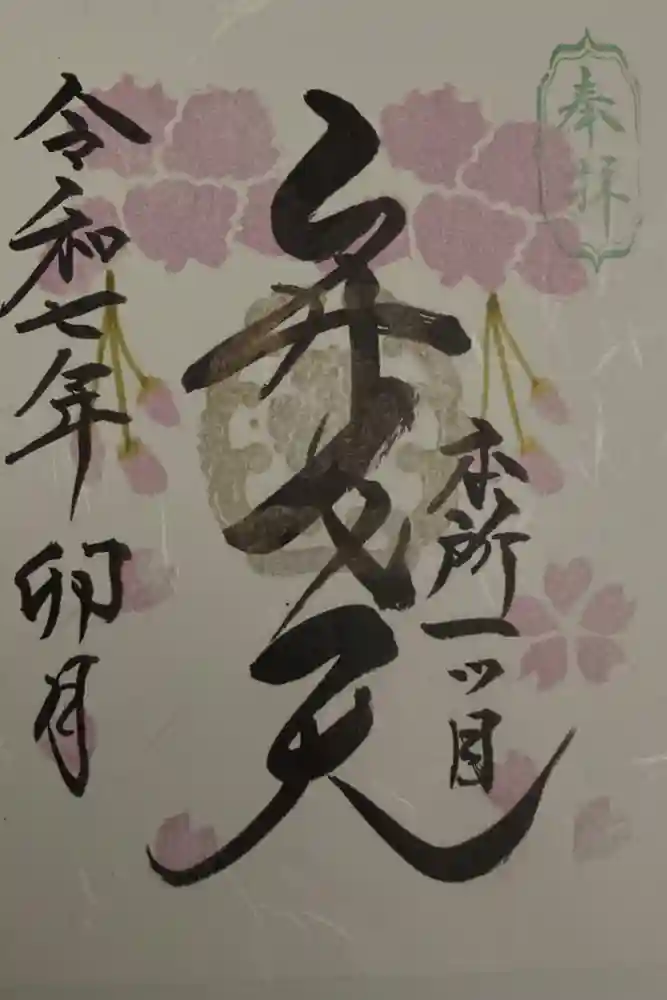 奉拝
本所一ッ目
弁才天
令和七年 卯月